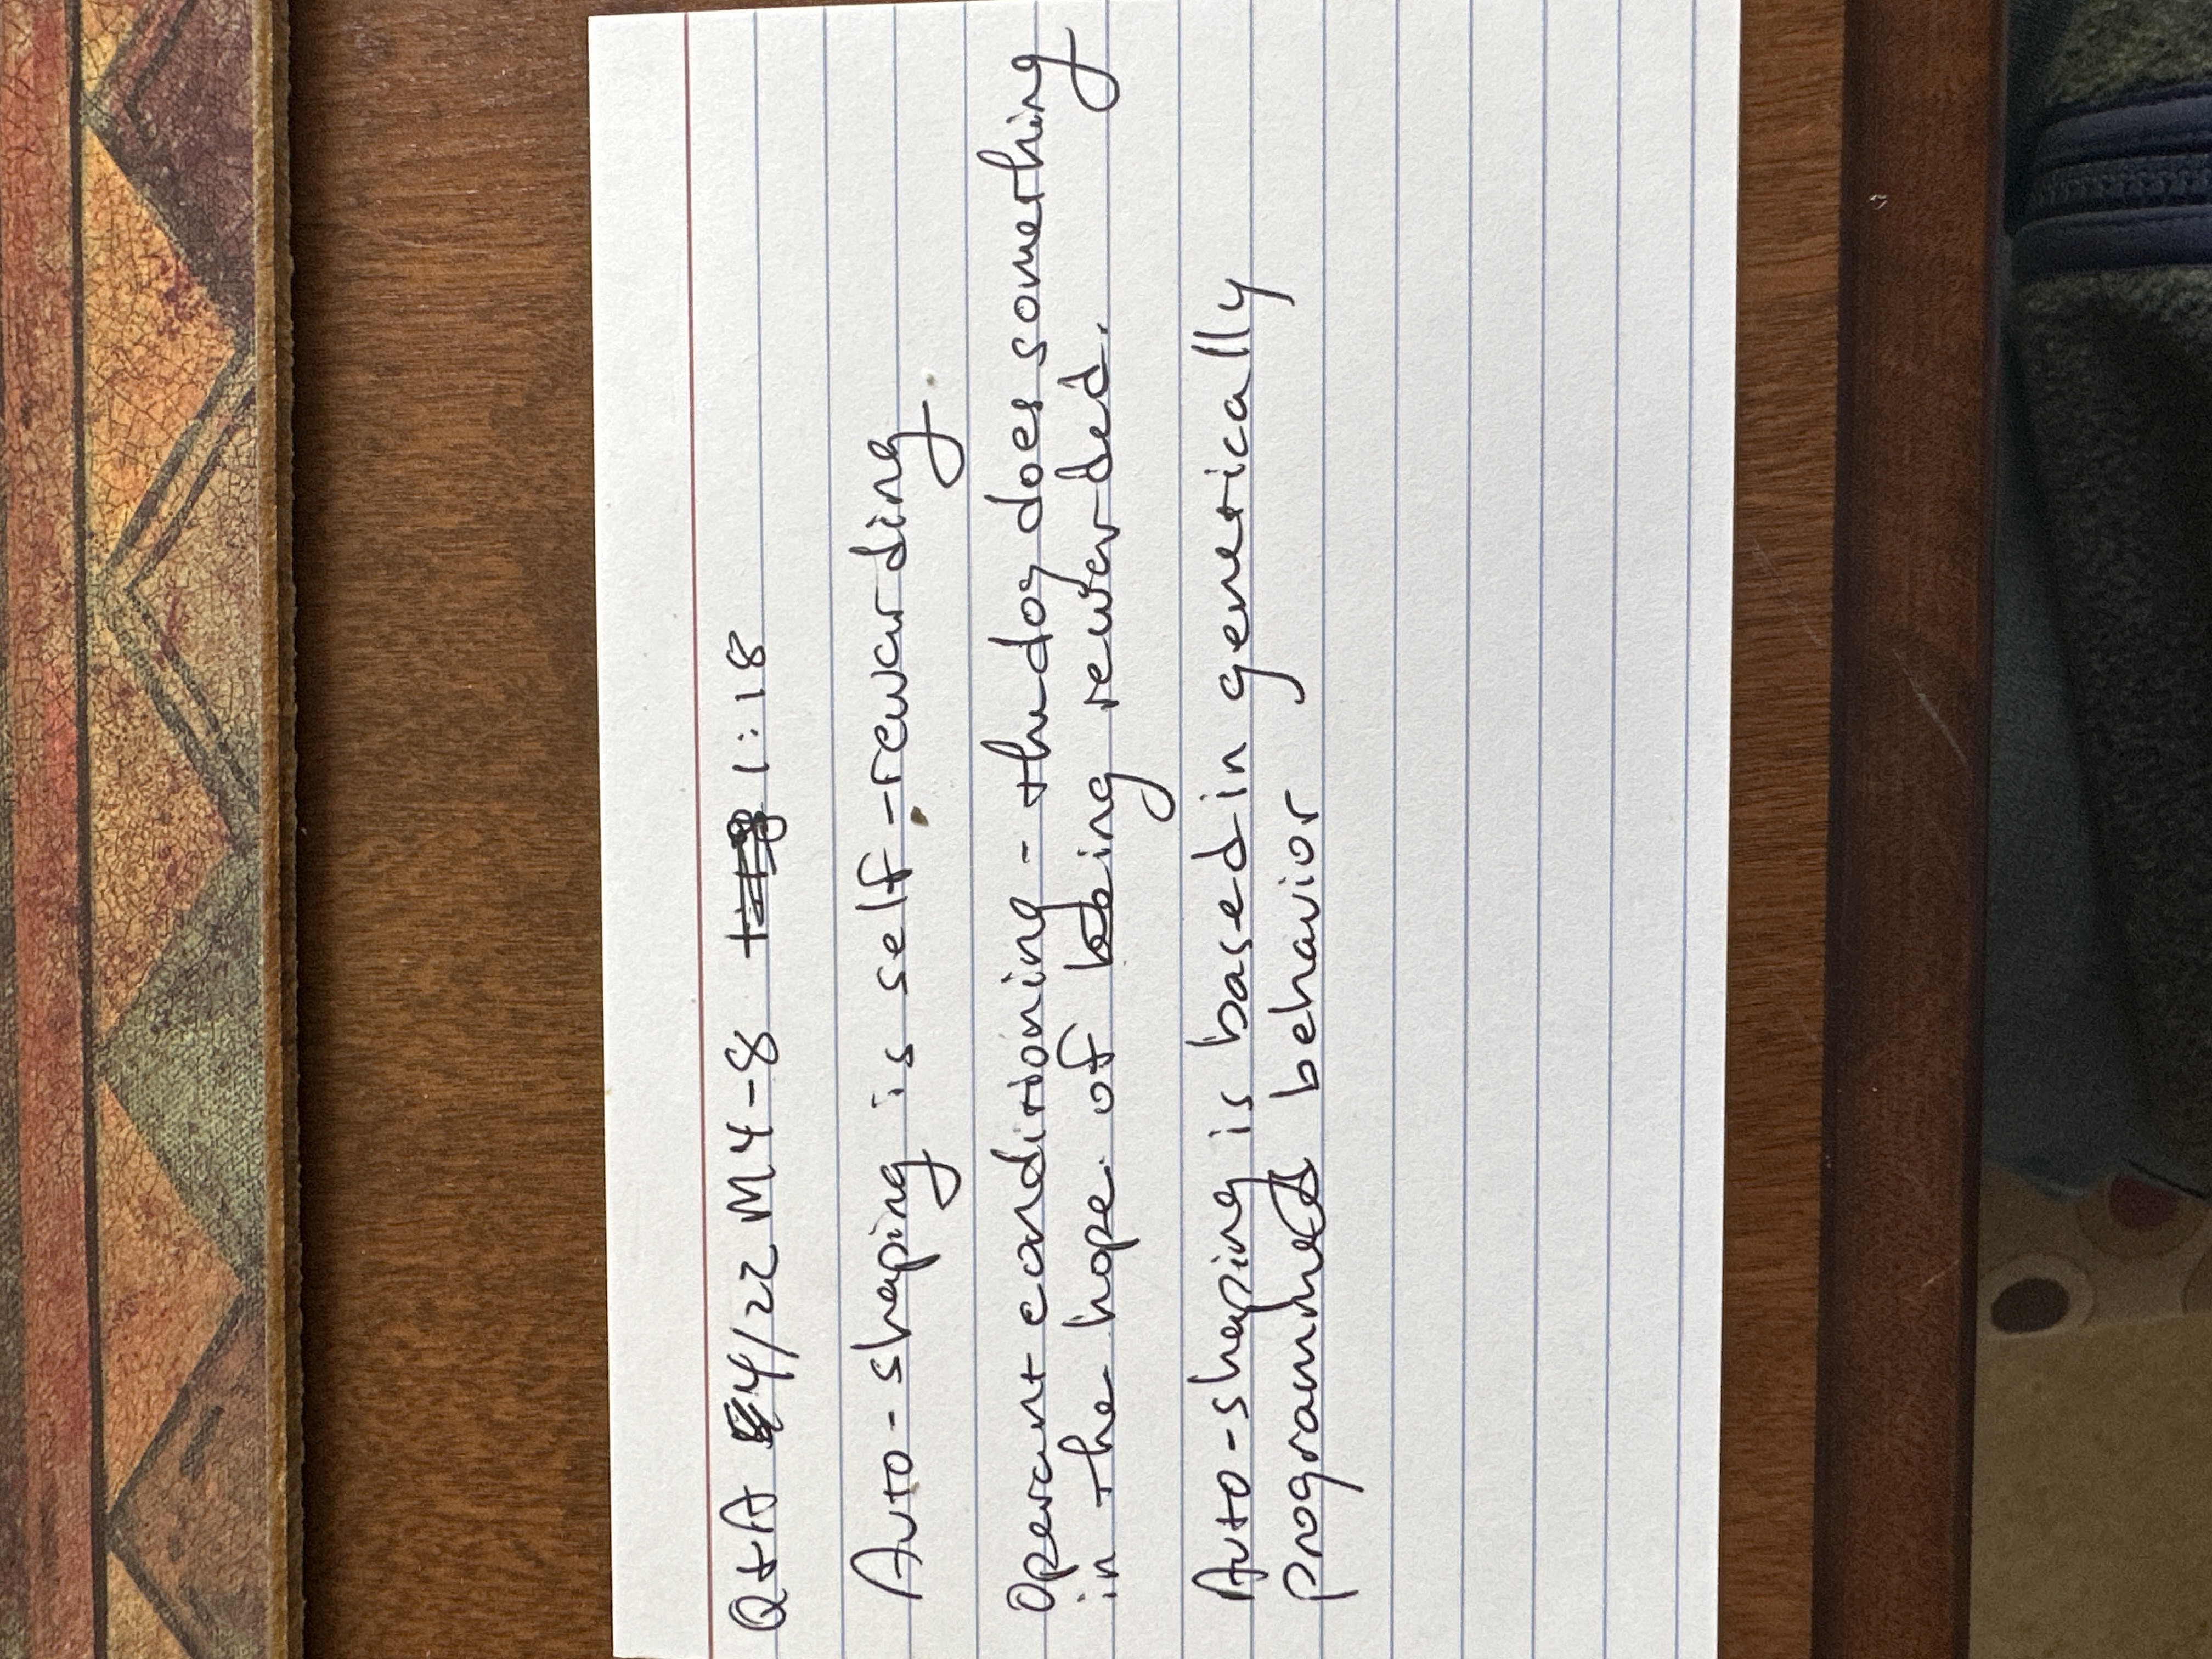 Q&A 4/22 M4-8 1:18
Auto-shaping is self-rewarding
Operant conditioning - the dog does something
in the hope of being rewarded.
Auto-shaping is based in genetically
programmed behavior